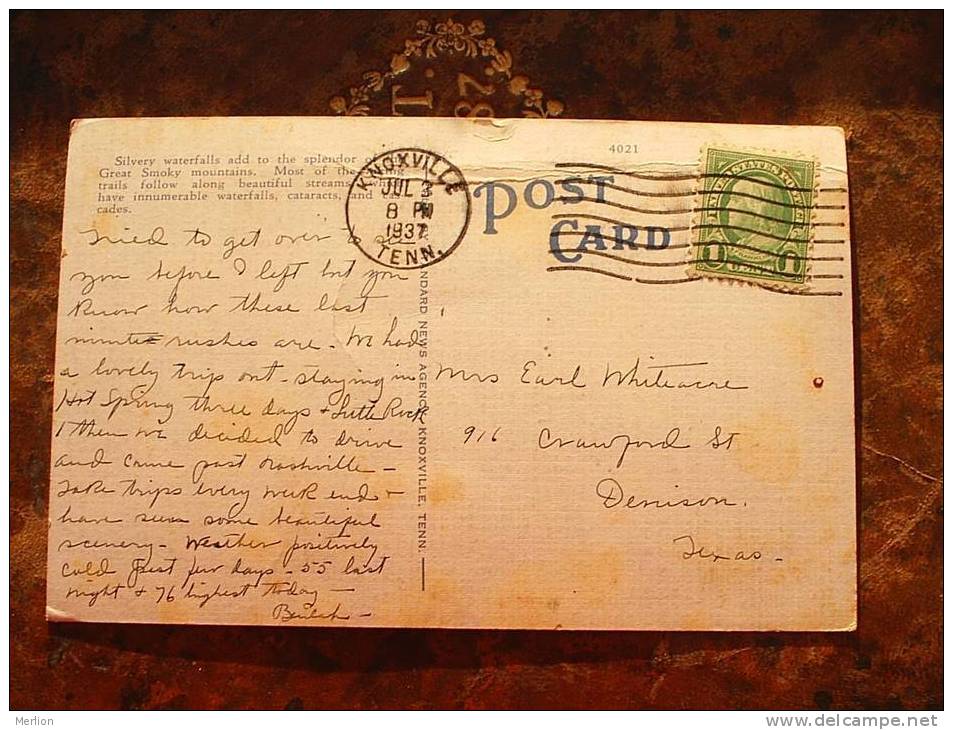 T. 87.
4021
Silvery waterfalls add to the splendor
Great Smoky mountains. Most of the
trails follow along beautiful streams
have innumerable waterfalls, cataracts, and cas-
cades.
KNOXVILLE
JUL 3
8 PM
1937
TENN.
POST
CARD
1
Tried to get over to see
you before I left but you
know how these last
minute rushes are - We had
a lovely trip out - staying in
Hot Spring three days & Little Rock
1 then we decided to drive
and came past Nashville -
Take trips every week end &
have seen some beautiful
scenery - Weather positively
cold past few days - 55 last
night & 76 highest today -
Beulah -
NDARD NEWS AGENCY, KNOXVILLE, TENN.
Mrs Earl Whiteacre
916 Crawford St
Denison.
Texas -
Merlion
www.delcampe.net